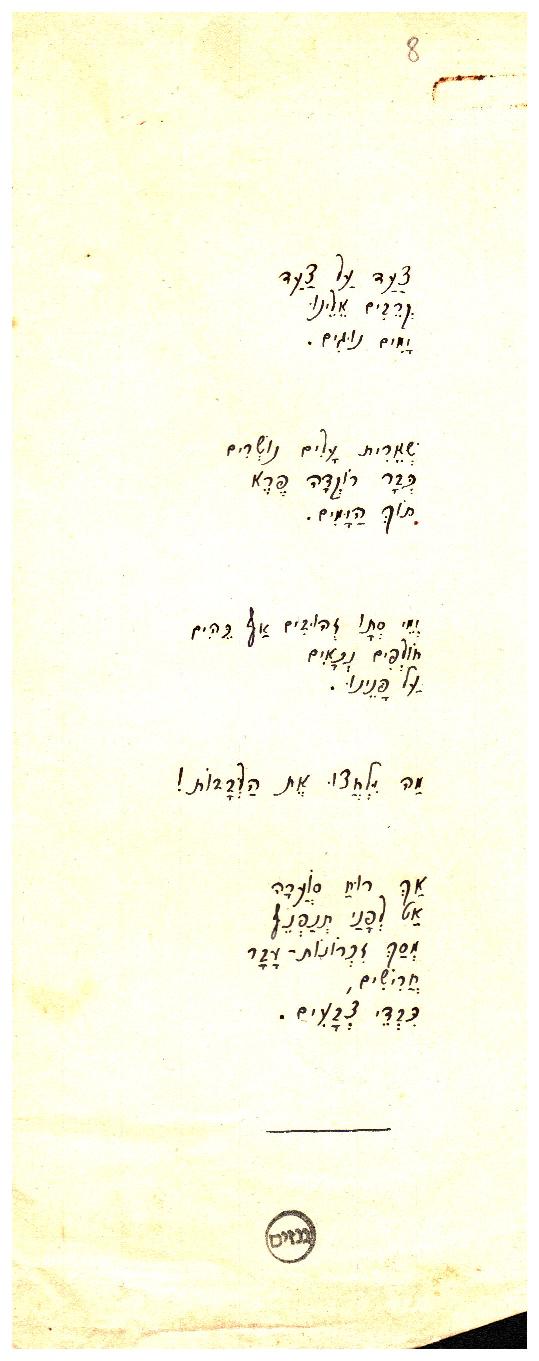 8
צַעַד עַל צַעַד
קְרֵבִים אֵלֵינוּ
יָמִים נוּגִים.
שְׁאֵרִית עָלִים נוֹשְׁרִים
כְּבָר רוֹקְדָה פֶּרֶא
תּוֹךְ הַיָּמִים.
יְמֵי סְתָו זְהוּבִים אַף כֵּהִים
חוֹלְפִים נְכָאִים
עַל פָּנֵינוּ.
מַה יִּלְחֲצוּ אֶת הַלְּבָבוֹת!
אַךְ רוּחַ סוֹעֲרָה
אַט לְפָנַי תְּנַפְנֵף
מְסַךְ זִכְרוֹנוֹת-עָבָר
חֲרִישִׁים,
כִּבְדֵי צְבָעִים.
גנזים